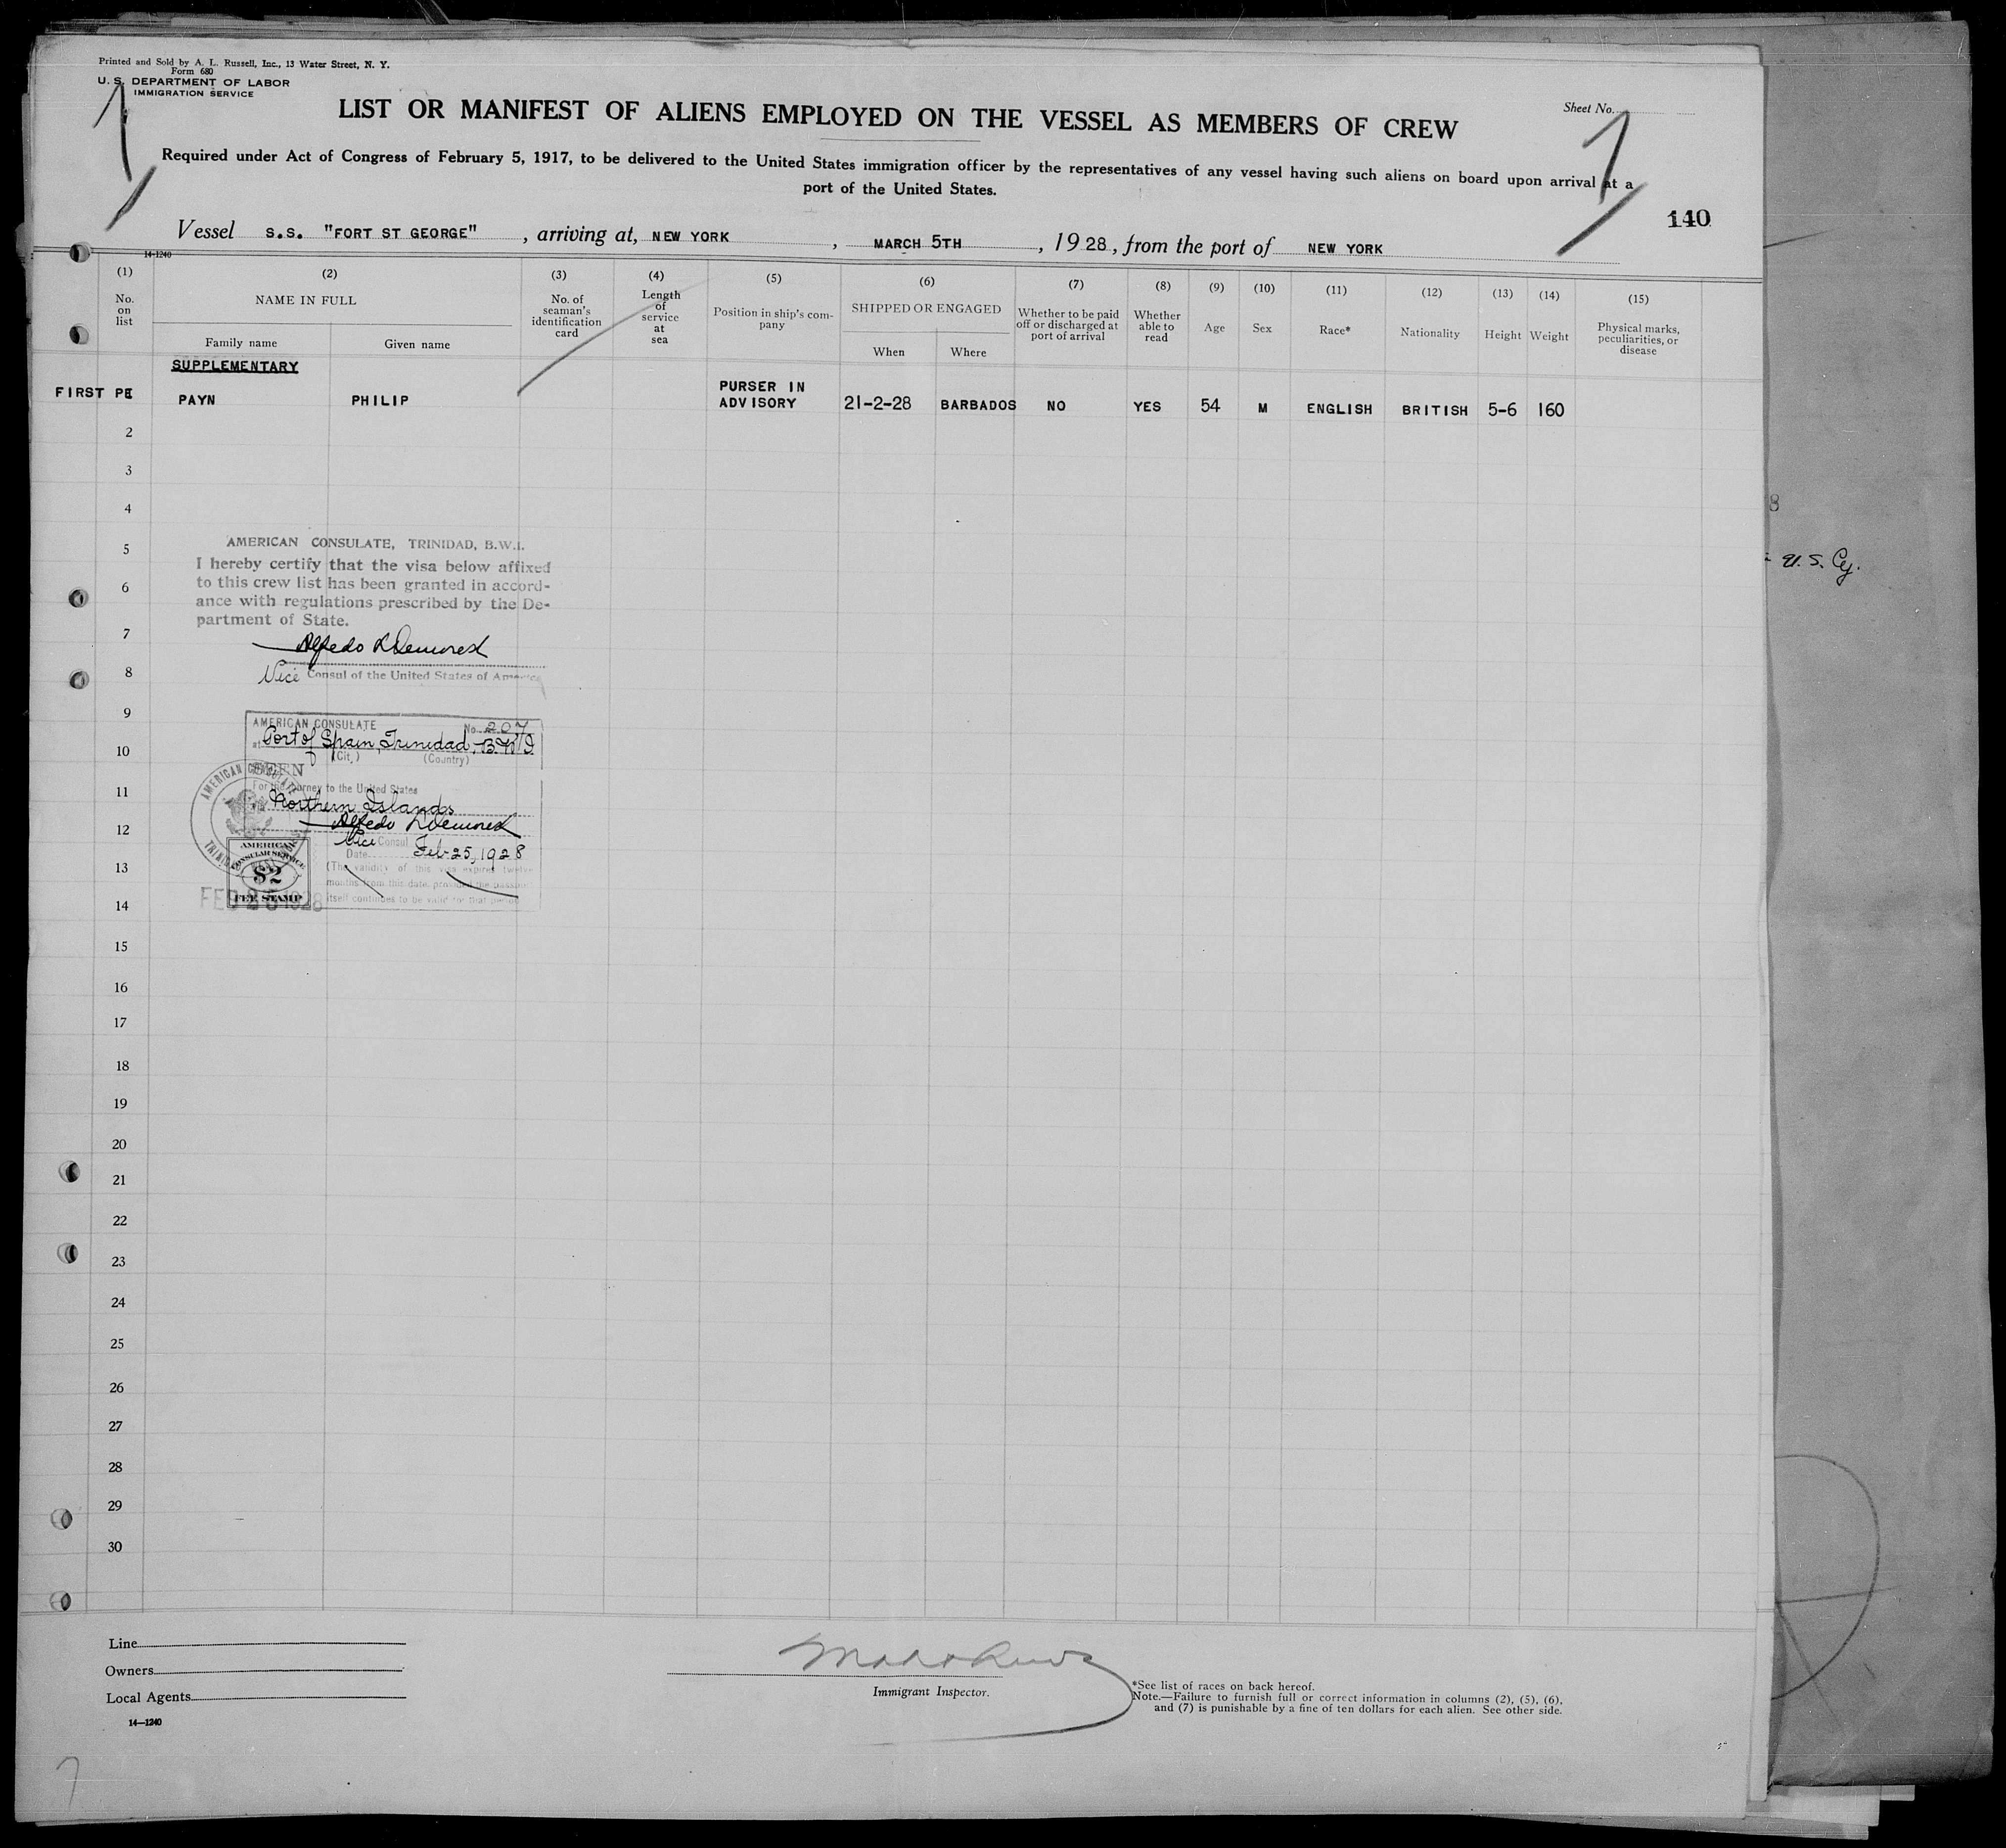 Printed and Sold by A. L. Russell, Inc., 13 Water Street, N. Y.
Form 680
U. S. DEPARTMENT OF LABOR
IMMIGRATION SERVICE
LIST OR MANIFEST OF ALIENS EMPLOYED ON THE VESSEL AS MEMBERS OF CREW
Sheet No.
Required under Act of Congress of February 5, 1917, to be delivered to the United States immigration officer by the representatives of any vessel having such aliens on board upon arrival at a
port of the United States.
140
Vessel S.S. "FORT ST GEORGE", arriving at, NEW YORK, MARCH 5TH, 1928, from the port of NEW YORK
14-1240
(1) (2) (3) (4) (5) (6) (7) (8) (9) (10) (11) (12) (13) (14) (15)
No. on list
NAME IN FULL
Family name Given name
No. of seaman's identification card
Length of service at sea
Position in ship's company
SHIPPED OR ENGAGED
When Where
Whether to be paid off or discharged at port of arrival
Whether able to read
Age
Sex
Race*
Nationality
Height
Weight
Physical marks, peculiarities, or disease
SUPPLEMENTARY
FIRST PE PAYN PHILIP PURSER IN ADVISORY 21-2-28 BARBADOS NO YES 54 M ENGLISH BRITISH 5-6 160
2
3
4
5
6
7
8
9
10
11
12
13
14
15
16
17
18
19
20
21
22
23
24
25
26
27
28
29
30
AMERICAN CONSULATE, TRINIDAD, B.W.I.
I hereby certify that the visa below affixed
to this crew list has been granted in accord-
ance with regulations prescribed by the De-
partment of State.
Vice Consul of the United States of America
AMERICAN CONSULATE No. 207
at Port of Spain, Trinidad, B.W.I.
(City) (Country)
SEEN
For the journey to the United States
Northern Islands
Vice Consul
Date Feb 25, 1928
(The validity of this visa expires twelve
months from this date, provided the passport
itself continues to be valid for that period
AMERICAN
CONSULAR SERVICE
$2
FEE STAMP
FEB 25 1928
U.S. Cy.
Line
Owners
Local Agents
14—1240
Immigrant Inspector.
*See list of races on back hereof.
Note.—Failure to furnish full or correct information in columns (2), (5), (6),
and (7) is punishable by a fine of ten dollars for each alien. See other side.